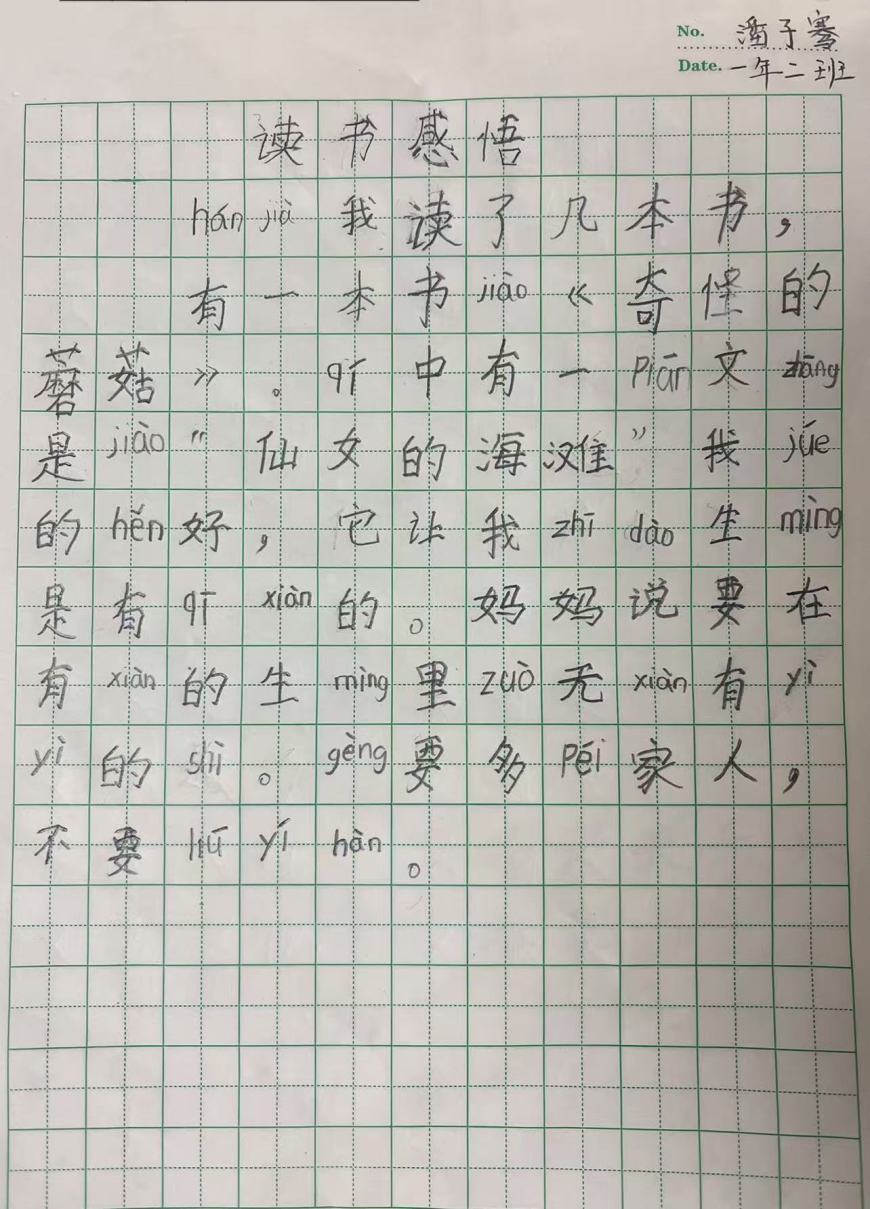 No. 潘子骞
Date. 一年二班
读书感悟
hán jià 我读了几本书，
有一本书 jiào 《奇怪的
蘑菇》。qī 中有一 Piān 文 zhāng
是 jiào “仙女的海滩” 我 júe
的 hěn 好，它让我 zhī dào 生 mìng
是有 qī xiàn 的。妈妈说要在
有 xiàn 的生 mìng 里 zuò 无 xiàn 有 yì
yì 的 shì。gèng 要多 Péi 家人，
不要 liú yí hàn。